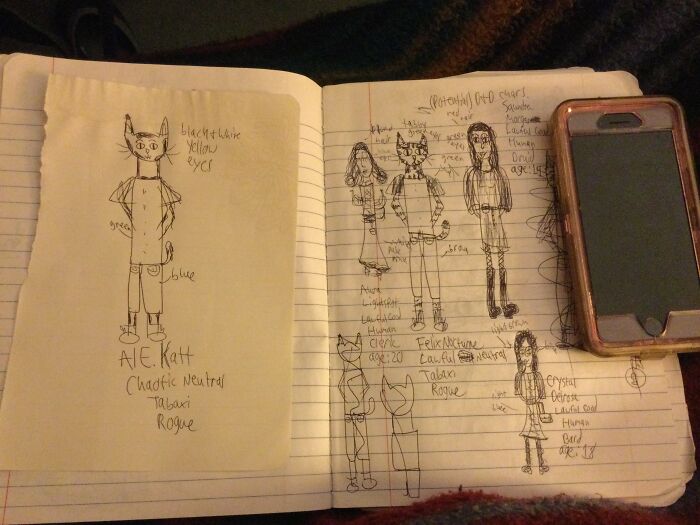 black + white
yellow
eyes
green
blue
Al E. Katt
Chaotic Neutral
Tabaxi
Rogue
(Potential) D+D chars.
red
hair
tabby
green eyes
green
eyes
green
hair
brown
Saundra
Lawful Good
Human
Druid
age: 19
Aura
Lightspot
Lawful Good
Human
Cleric
age: 20
Felix Nocturne
Lawful Neutral
Tabaxi
Rogue
Crystal
Delrosa
Lawful Good
Human
Bard
age: 18